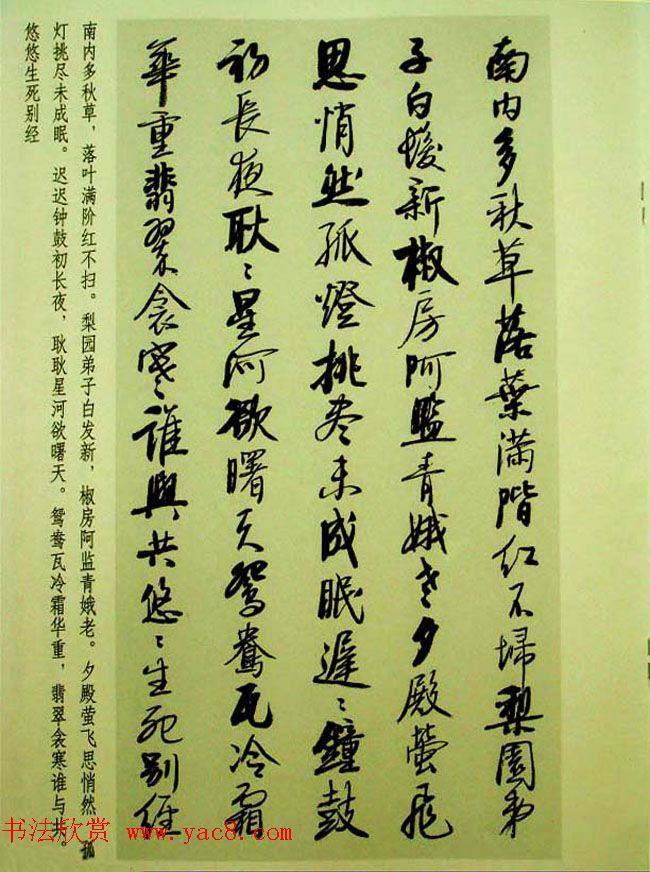 南内多秋草落葉滿階紅不埽梨園弟
子白髮新椒房阿監青娥老夕殿螢飛
思悄然孤燈挑盡未成眠遲〻鐘鼓
初長夜耿〻星河欲曙天鴛鴦瓦冷霜
華重翡翠衾寒誰與共悠〻生死別經
南内多秋草，落叶满阶红不扫。梨园弟子白发新，椒房阿监青娥老。夕殿萤飞思悄然，孤
灯挑尽未成眠。迟迟钟鼓初长夜，耿耿星河欲曙天。鸳鸯瓦冷霜华重，翡翠衾寒谁与共。
悠悠生死别经
书法欣赏 www.yac8.com